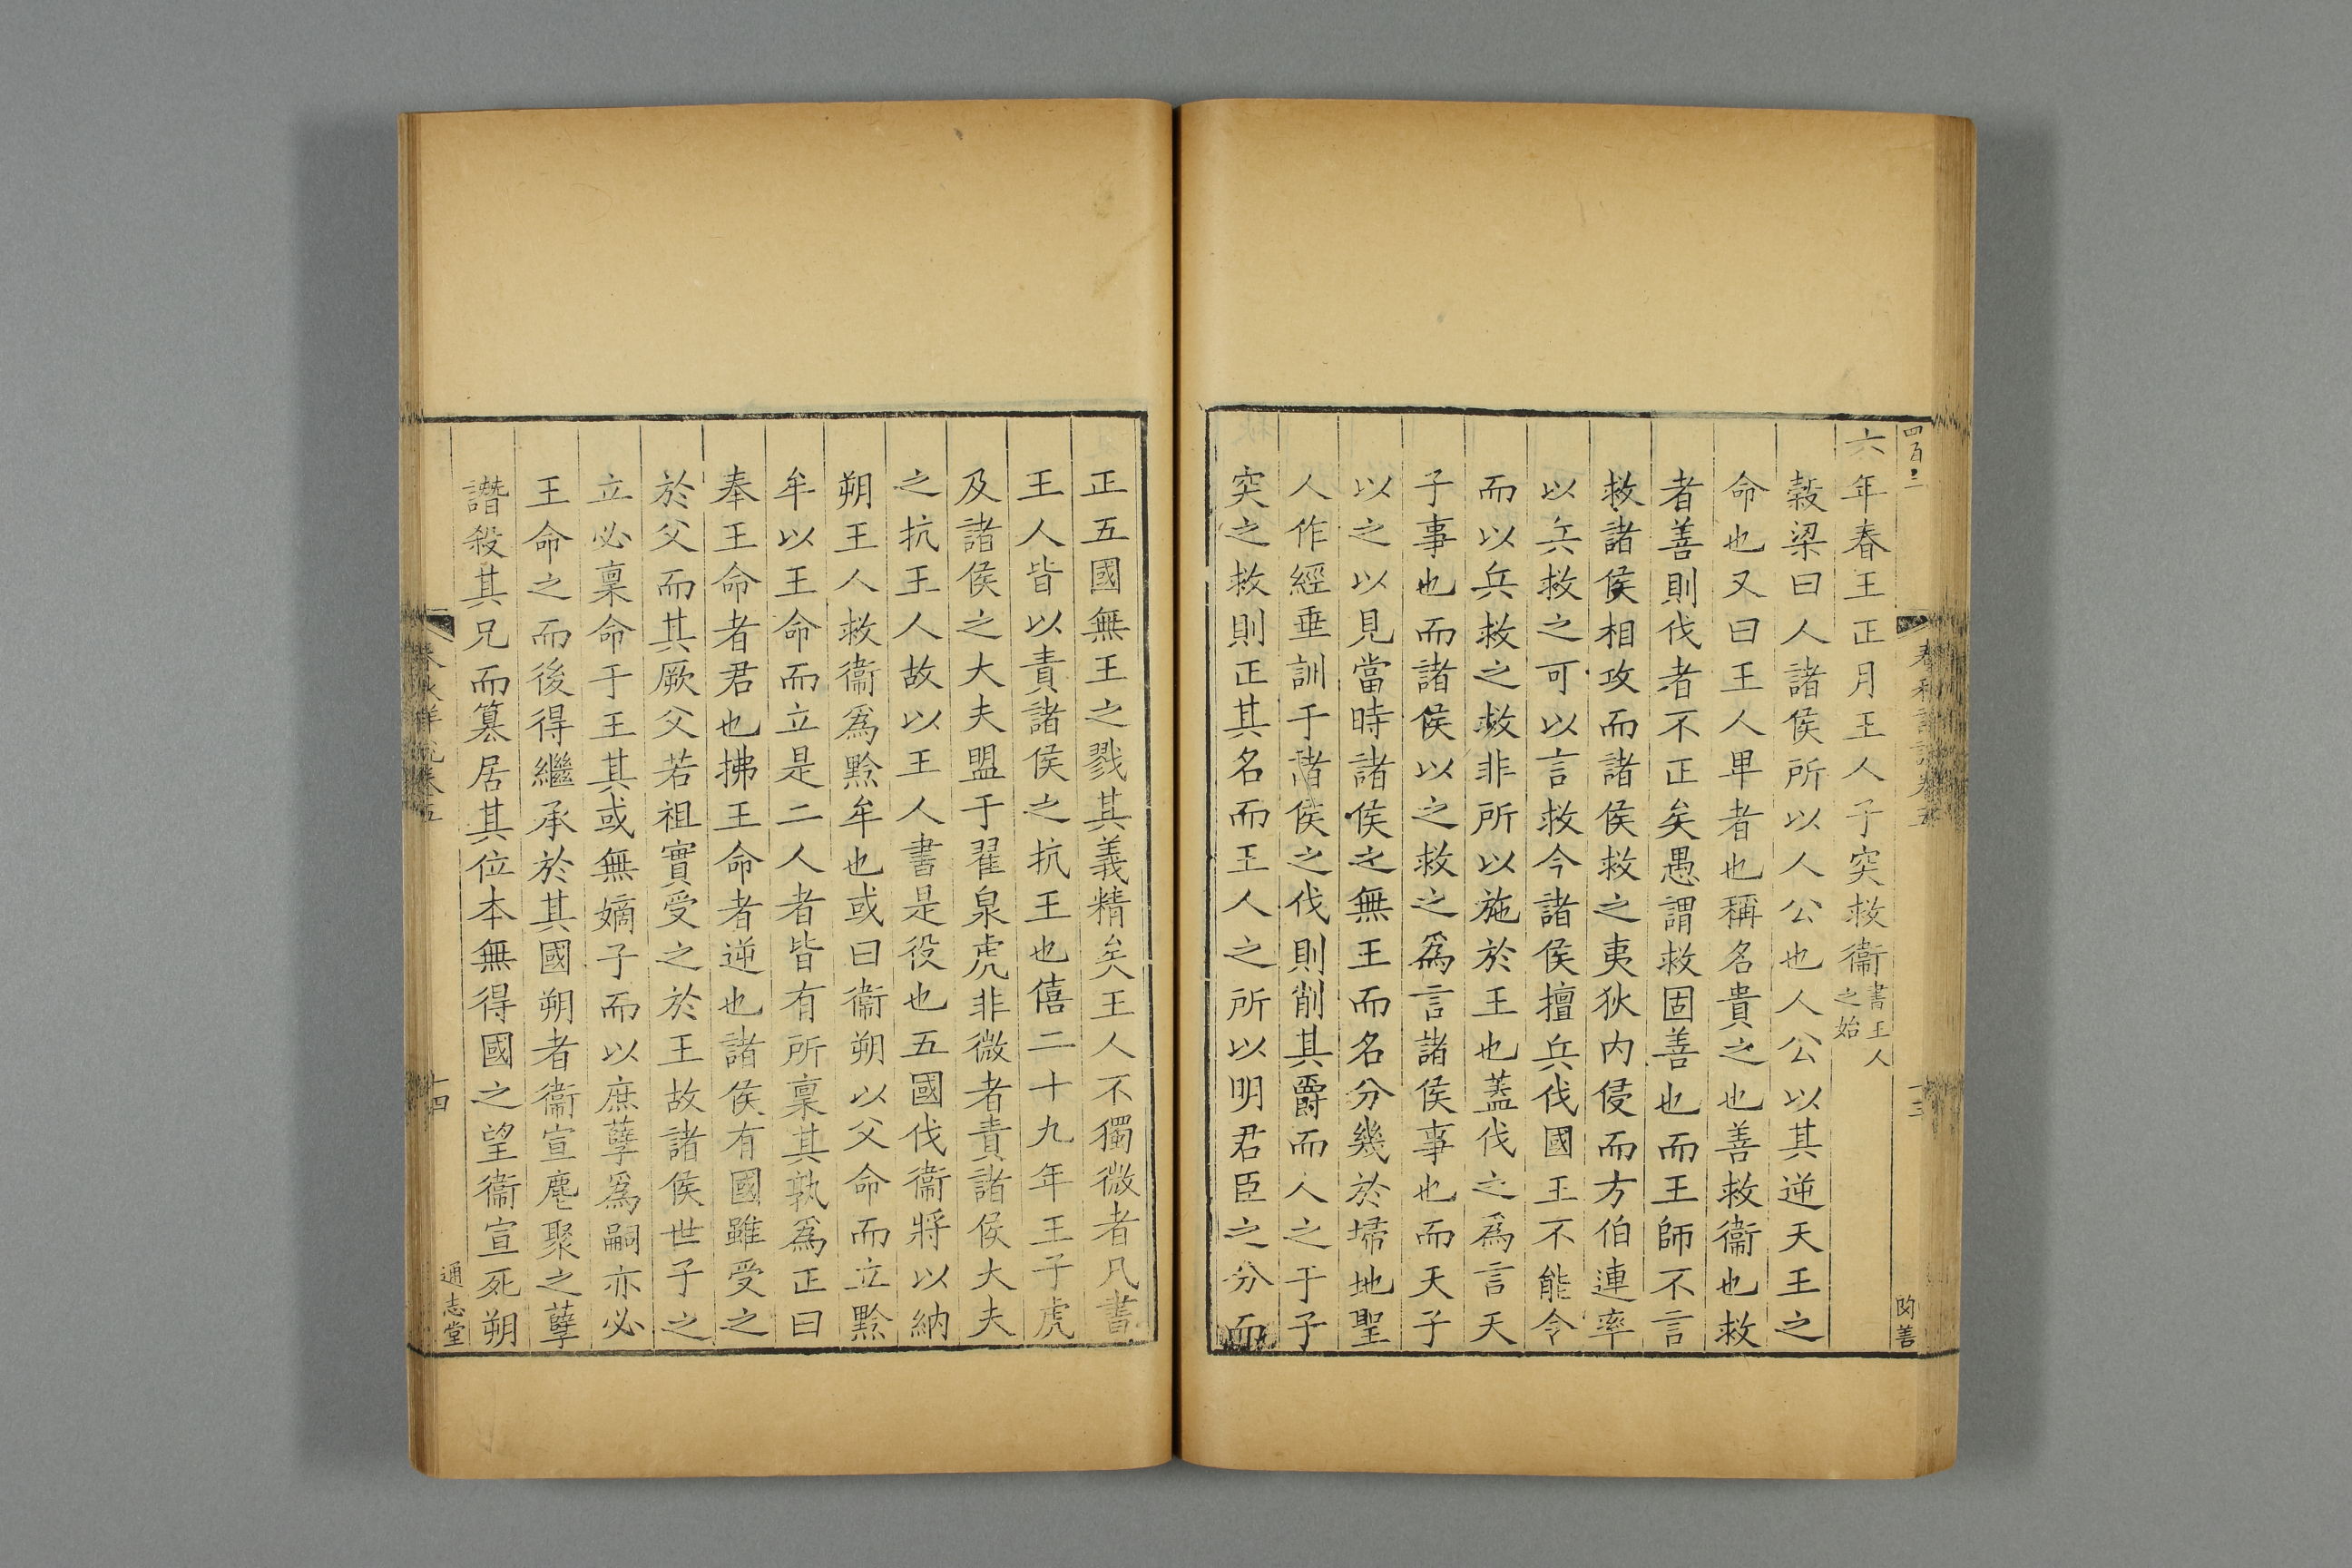 六年春王正月王人子突救衞書王人之始
穀梁曰人諸侯所以人公也人公以其逆天王之
命也又曰王人卑者也稱名貴之也善救衞也救
者善則伐者不正矣愚謂救固善也而王師不言
救諸侯相攻而諸侯救之夷狄内侵而方伯連率
以兵救之可以言救今諸侯擅兵伐國王不能令
而以兵救之救非所以施於王也蓋伐之爲言天
子事也而諸侯以之救之爲言諸侯事也而天子
以之以見當時諸侯之無王而名分幾於埽地聖
人作經垂訓于諸侯之伐則削其爵而人之于子
突之救則正其名而王人之所以明君臣之分而
正五國無王之戮其義精矣王人不獨微者凡書
王人皆以責諸侯之抗王也僖二十九年王子虎
及諸侯之大夫盟于翟泉虎非微者責諸侯大夫
之抗王人故以王人書是役也五國伐衞將以納
朔王人救衞爲黔牟也或曰衞朔以父命而立黔
牟以王命而立是二人者皆有所稟其孰爲正曰
奉王命者君也拂王命者逆也諸侯有國雖受之
於父而其厥父若祖實受之於王故諸侯世子之
立必稟命于王其或無嫡子而以庶孽爲嗣亦必
王命之而後得繼承於其國朔者衞宣麀聚之孽
譖殺其兄而篡居其位本無得國之望衞宣死朔
春秋詳説卷五
十四
通志堂